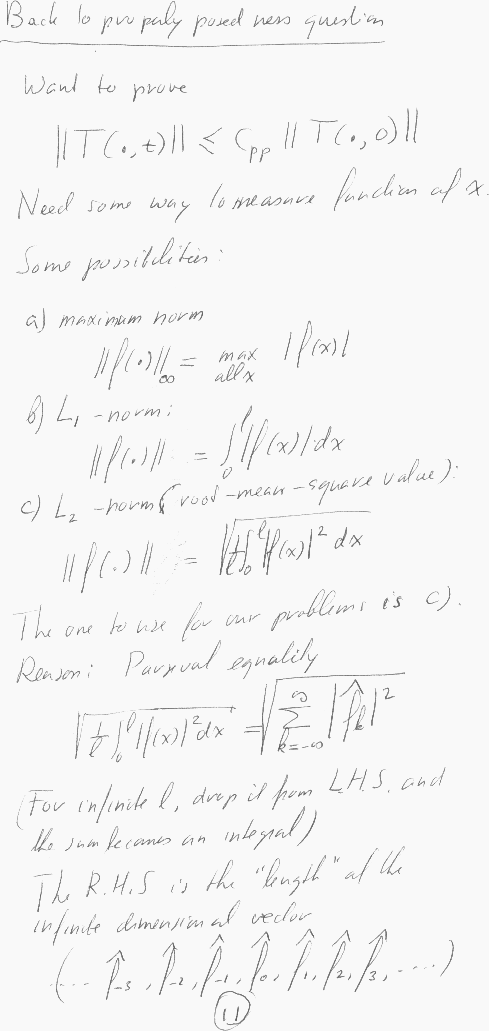 Back to properly posedness question
Want to prove
||T(·,t)|| ≤ C_pp ||T(·,0)||
Need some way to measure function of x.
Some possibilities:
a) maximum norm
||f(·)||_∞ = max_{all x} |f(x)|
b) L_1 -norm:
||f(·)|| = ∫_0^ℓ |f(x)| dx
c) L_2 -norm (root-mean-square value):
||f(·)|| = √(1/ℓ ∫_0^ℓ |f(x)|² dx)
The one to use for our problems is c).
Reason: Parseval equality
√(1/ℓ ∫_0^ℓ |f(x)|² dx) = √(∑_{k=-∞}^∞ |f̂_k|²)
(For infinite ℓ, drop it from L.H.S. and
the sum becomes an integral)
The R.H.S is the "length" of the
infinite dimensional vector
(... f̂_{-3}, f̂_{-2}, f̂_{-1}, f̂_0, f̂_1, f̂_2, f̂_3, ....)
11